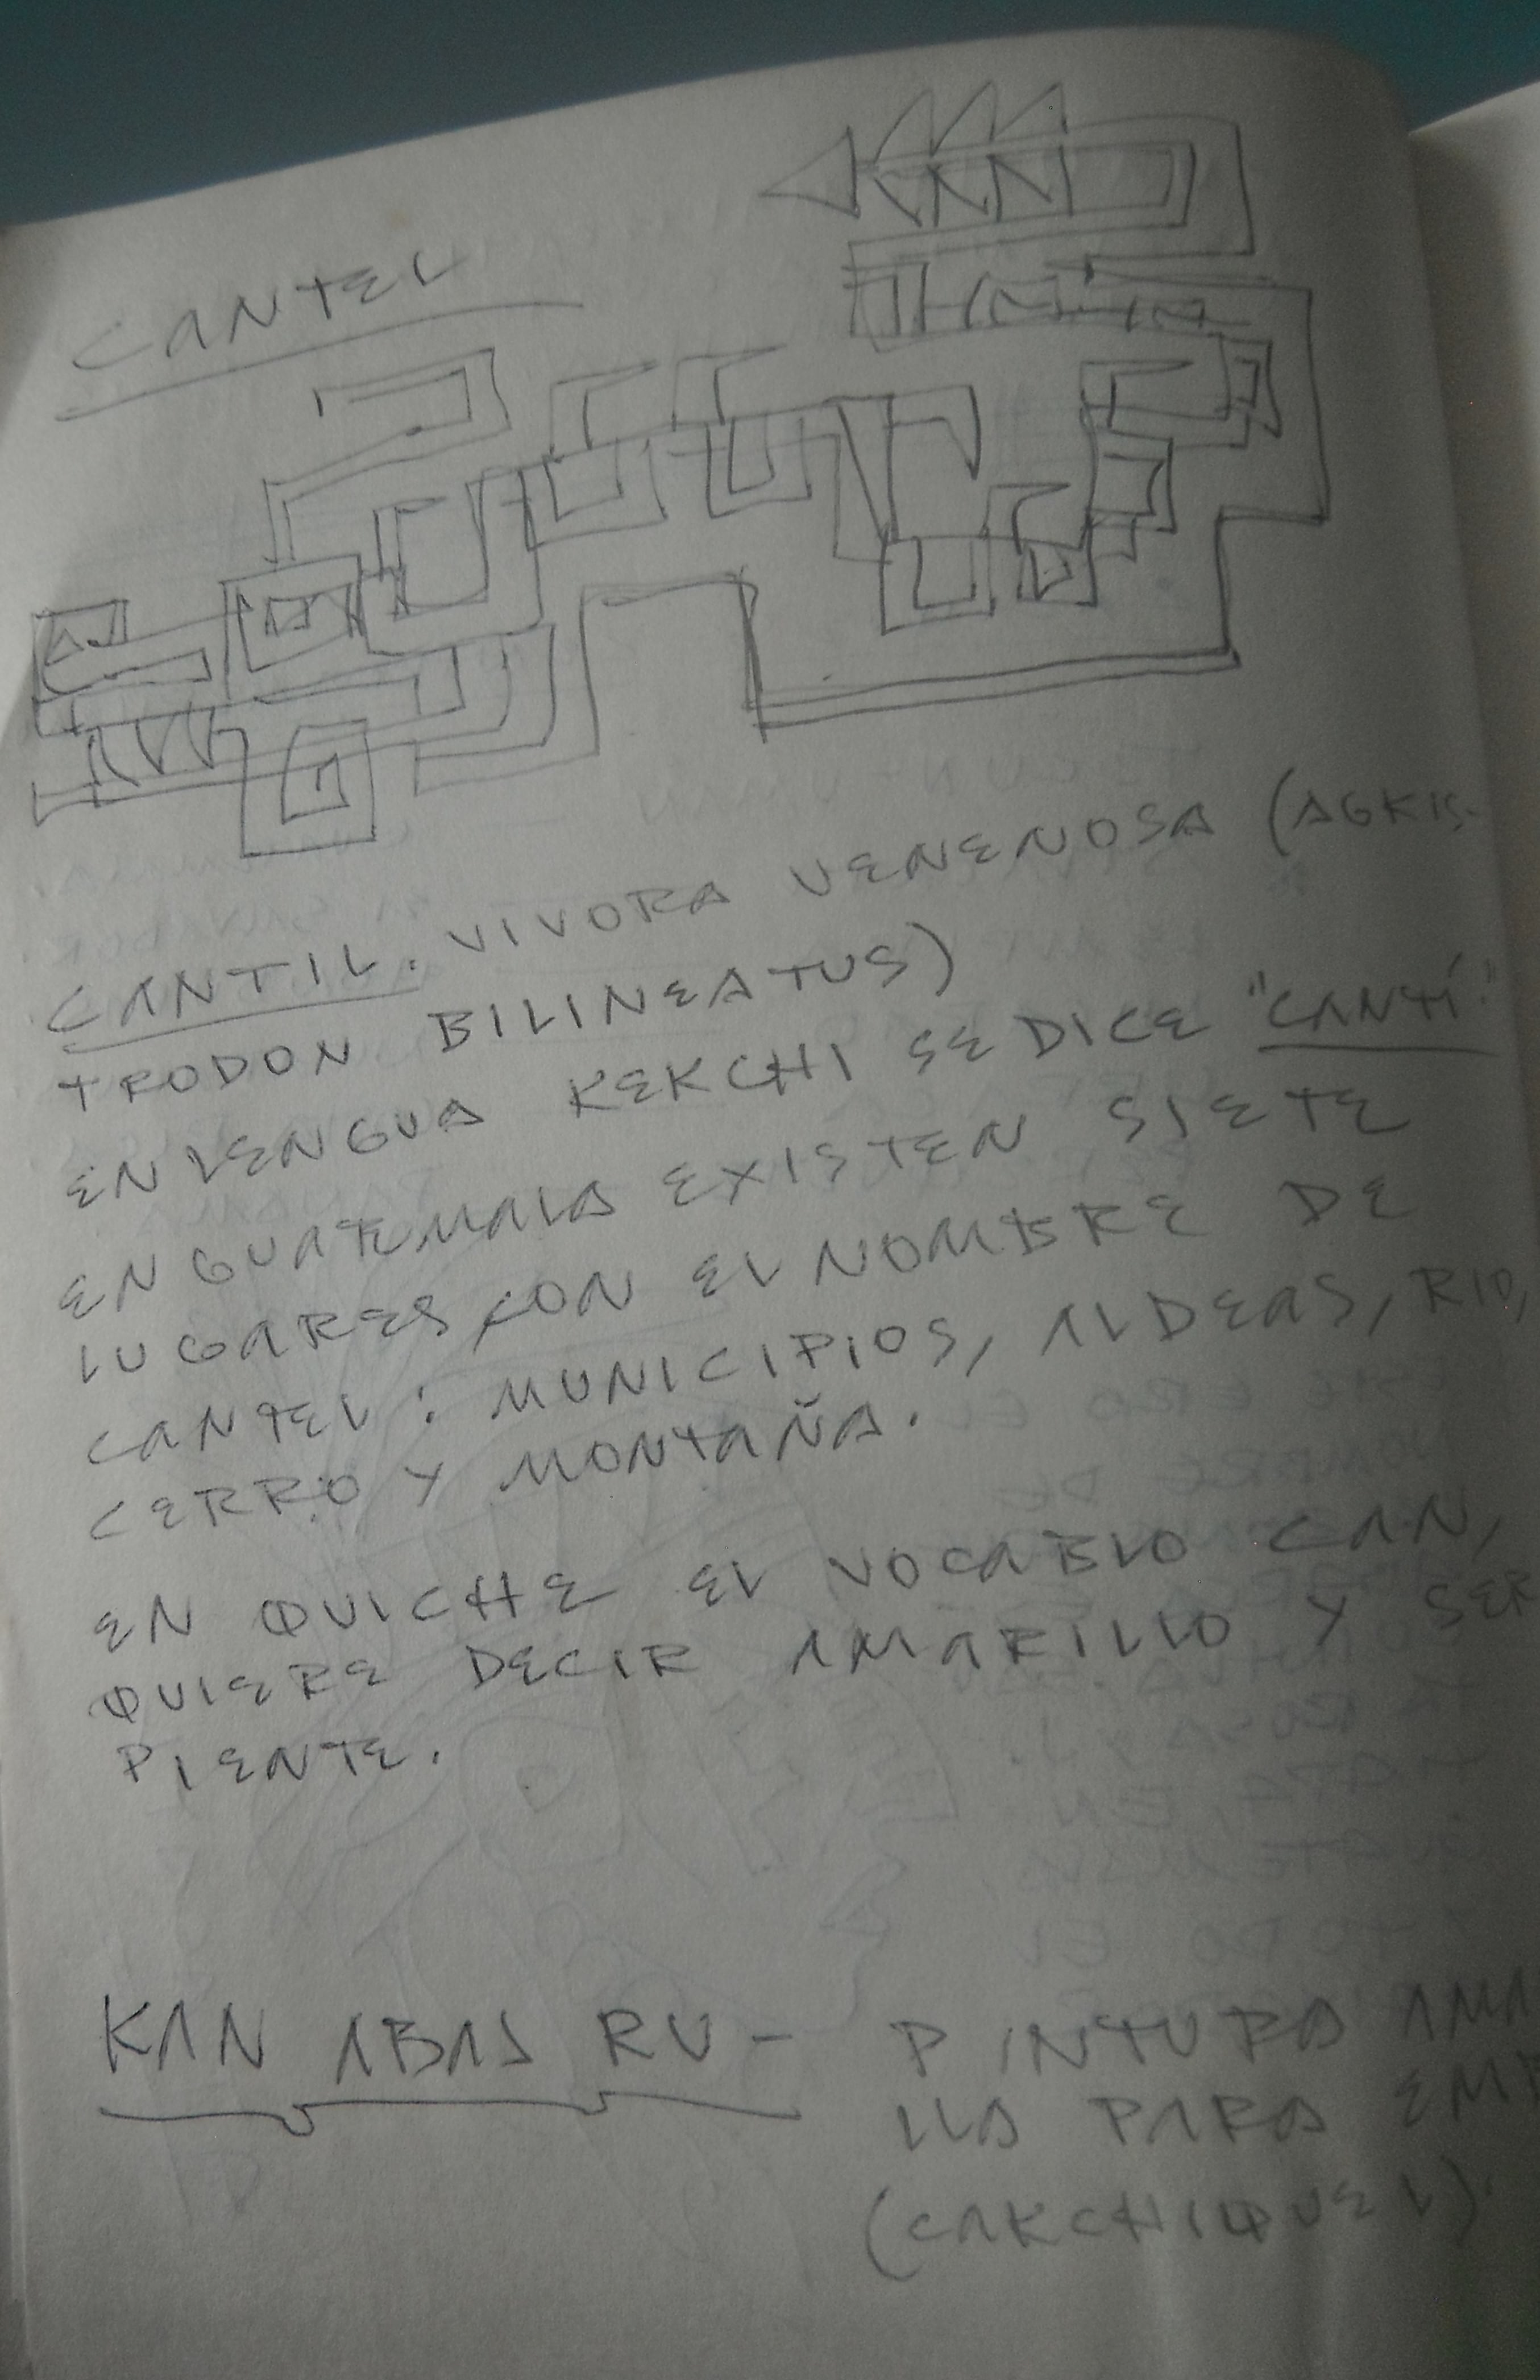 CANTEL
CANTIL. VIVORA VENENOSA (AGKIS-
TRODON BILINEATUS)
EN LENGUA KEKCHI SE DICE "CANTÍ"
EN GUATEMALA EXISTEN SIETE
LUGARES CON EL NOMBRE DE
CANTEL: MUNICIPIOS, ALDEAS, RIO,
CERRO Y MONTAÑA.
EN QUICHE EL VOCABLO CAN,
QUIERE DECIR AMARILLO Y SER
PIENTE.
KAN ABAJ RU - PINTURA AMA
LLA PARA
(CAKCHIQUEL).